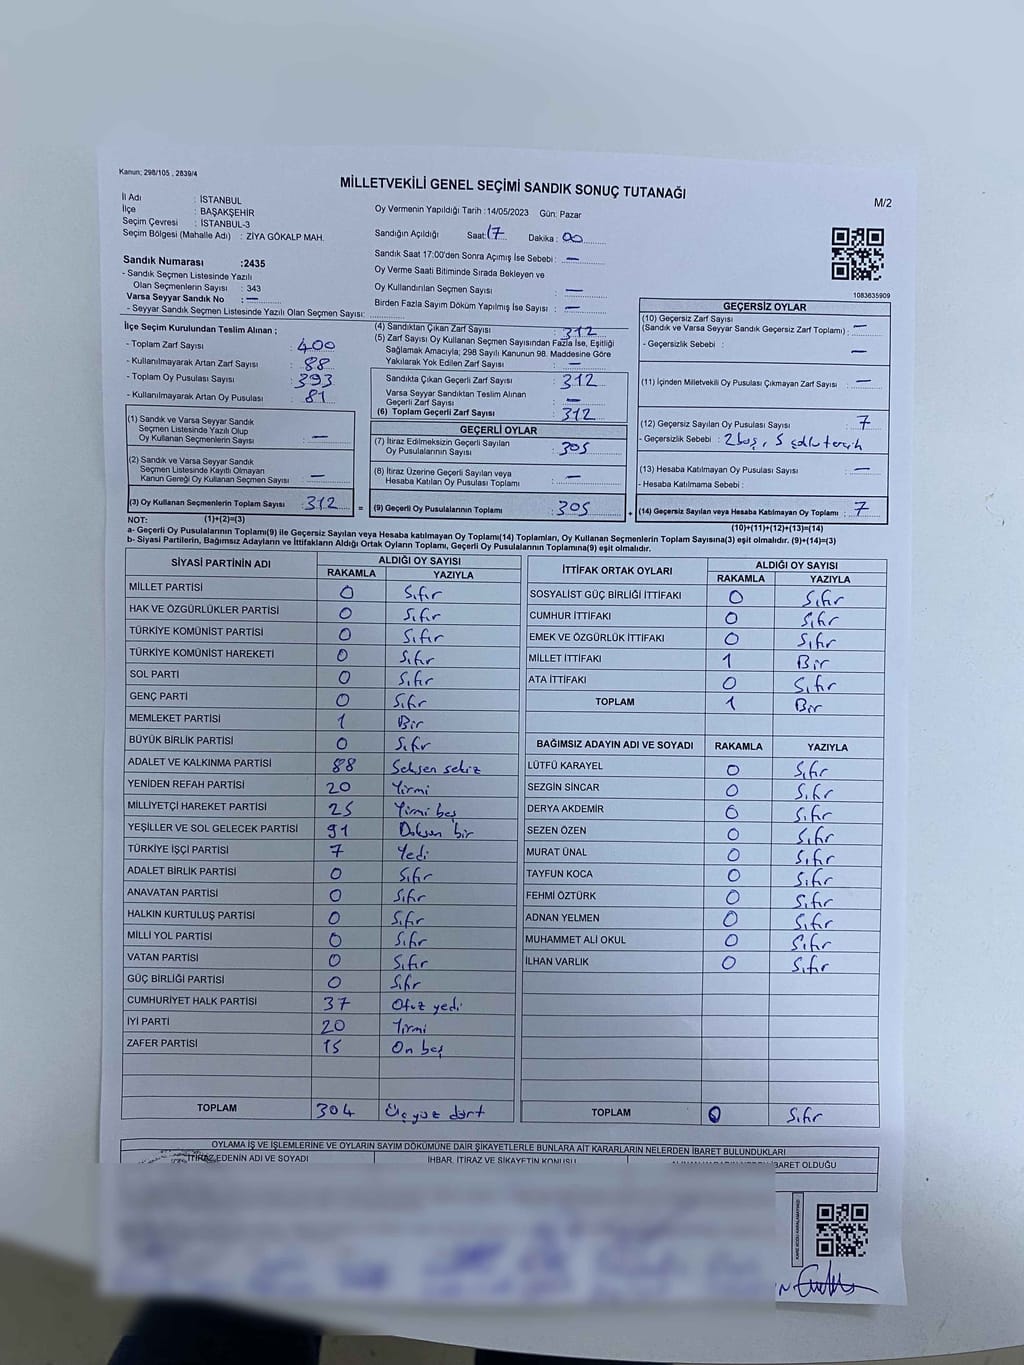 Kanun; 298/105 , 2839/4
MİLLETVEKİLİ GENEL SEÇİMİ SANDIK SONUÇ TUTANAĞI
M/2
İl Adı : İSTANBUL
İlçe : BAŞAKŞEHİR
Seçim Çevresi : İSTANBUL-3
Seçim Bölgesi (Mahalle Adı) : ZİYA GÖKALP MAH.
Oy Vermenin Yapıldığı Tarih :14/05/2023 Gün: Pazar
Sandığın Açıldığı Saat: 17 Dakika: 00
Sandık Saat 17:00'den Sonra Açımış İse Sebebi : —
Oy Verme Saati Bitiminde Sırada Bekleyen ve
Oy Kullandırılan Seçmen Sayısı : —
Birden Fazla Sayım Döküm Yapılmış İse Sayısı : —
1083635909
Sandık Numarası :2435
- Sandık Seçmen Listesinde Yazılı
Olan Seçmenlerin Sayısı : 343
Varsa Seyyar Sandık No : —
- Seyyar Sandık Seçmen Listesinde Yazılı Olan Seçmen Sayısı:
İlçe Seçim Kurulundan Teslim Alınan ;
- Toplam Zarf Sayısı : 400
- Kullanılmayarak Artan Zarf Sayısı : 88
- Toplam Oy Pusulası Sayısı : 393
- Kullanılmayarak Artan Oy Pusulası : 81
(1) Sandık ve Varsa Seyyar Sandık
Seçmen Listesinde Yazılı Olup
Oy Kullanan Seçmenlerin Sayısı : —
(2) Sandık ve Varsa Seyyar Sandık
Seçmen Listesinde Kayıtlı Olmayan
Kanun Gereği Oy Kullanan Seçmen Sayısı : —
(3) Oy Kullanan Seçmenlerin Toplam Sayısı : 312 =
(4) Sandıktan Çıkan Zarf Sayısı : 312
(5) Zarf Sayısı Oy Kullanan Seçmen Sayısından Fazla İse, Eşitliği
Sağlamak Amacıyla; 298 Sayılı Kanunun 98. Maddesine Göre
Yakılarak Yok Edilen Zarf Sayısı : —
Sandıkta Çıkan Geçerli Zarf Sayısı : 312
Varsa Seyyar Sandıktan Teslim Alınan
Geçerli Zarf Sayısı : —
(6) Toplam Geçerli Zarf Sayısı : 312
GEÇERLİ OYLAR
(7) İtiraz Edilmeksizin Geçerli Sayılan
Oy Pusulalarının Sayısı : 305
(8) İtiraz Üzerine Geçerli Sayılan veya
Hesaba Katılan Oy Pusulası Toplamı : —
(9) Geçerli Oy Pusulalarının Toplamı : 305 +
GEÇERSİZ OYLAR
(10) Geçersiz Zarf Sayısı
(Sandık ve Varsa Seyyar Sandık Geçersiz Zarf Toplamı) : —
- Geçersizlik Sebebi : —
(11) İçinden Milletvekili Oy Pusulası Çıkmayan Zarf Sayısı : —
(12) Geçersiz Sayılan Oy Pusulası Sayısı : 7
- Geçersizlik Sebebi : 2 boş, 5 çoklu tercih
(13) Hesaba Katılmayan Oy Pusulası Sayısı : —
- Hesaba Katılmama Sebebi :
(14) Geçersiz Sayılan veya Hesaba Katılmayan Oy Toplamı : 7
NOT: (1)+(2)=(3)
(10)+(11)+(12)+(13)=(14)
a- Geçerli Oy Pusulalarının Toplamı(9) ile Geçersiz Sayılan veya Hesaba katılmayan Oy Toplamı(14) Toplamları, Oy Kullanan Seçmenlerin Toplam Sayısına(3) eşit olmalıdır. (9)+(14)=(3)
b- Siyasi Partilerin, Bağımsız Adayların ve İttifakların Aldığı Ortak Oyların Toplamı, Geçerli Oy Pusulalarının Toplamına(9) eşit olmalıdır.
SİYASİ PARTİNİN ADI ALDIĞI OY SAYISI
RAKAMLA YAZIYLA
MİLLET PARTİSİ 0 Sıfır
HAK VE ÖZGÜRLÜKLER PARTİSİ 0 Sıfır
TÜRKİYE KOMÜNİST PARTİSİ 0 Sıfır
TÜRKİYE KOMÜNİST HAREKETİ 0 Sıfır
SOL PARTİ 0 Sıfır
GENÇ PARTİ 0 Sıfır
MEMLEKET PARTİSİ 1 Bir
BÜYÜK BİRLİK PARTİSİ 0 Sıfır
ADALET VE KALKINMA PARTİSİ 88 Seksen sekiz
YENİDEN REFAH PARTİSİ 20 Yirmi
MİLLİYETÇİ HAREKET PARTİSİ 25 Yirmi beş
YEŞİLLER VE SOL GELECEK PARTİSİ 91 Doksan bir
TÜRKİYE İŞÇİ PARTİSİ 7 Yedi
ADALET BİRLİK PARTİSİ 0 Sıfır
ANAVATAN PARTİSİ 0 Sıfır
HALKIN KURTULUŞ PARTİSİ 0 Sıfır
MİLLİ YOL PARTİSİ 0 Sıfır
VATAN PARTİSİ 0 Sıfır
GÜÇ BİRLİĞİ PARTİSİ 0 Sıfır
CUMHURİYET HALK PARTİSİ 37 Otuz yedi
İYİ PARTİ 20 Yirmi
ZAFER PARTİSİ 15 On beş
TOPLAM 304 Üç yüz dört
İTTİFAK ORTAK OYLARI ALDIĞI OY SAYISI
RAKAMLA YAZIYLA
SOSYALİST GÜÇ BİRLİĞİ İTTİFAKI 0 Sıfır
CUMHUR İTTİFAKI 0 Sıfır
EMEK VE ÖZGÜRLÜK İTTİFAKI 0 Sıfır
MİLLET İTTİFAKI 1 Bir
ATA İTTİFAKI 0 Sıfır
TOPLAM 1 Bir
BAĞIMSIZ ADAYIN ADI VE SOYADI RAKAMLA YAZIYLA
LÜTFÜ KARAYEL 0 Sıfır
SEZGİN SİNCAR 0 Sıfır
DERYA AKDEMİR 0 Sıfır
SEZEN ÖZEN 0 Sıfır
MURAT ÜNAL 0 Sıfır
TAYFUN KOCA 0 Sıfır
FEHMİ ÖZTÜRK 0 Sıfır
ADNAN YELMEN 0 Sıfır
MUHAMMET ALİ OKUL 0 Sıfır
İLHAN VARLIK 0 Sıfır
TOPLAM 0 Sıfır
OYLAMA İŞ VE İŞLEMLERİNE VE OYLARIN SAYIM DÖKÜMÜNE DAİR ŞİKAYETLERLE BUNLARA AİT KARARLARIN NELERDEN İBARET BULUNDUKLARI
İTİRAZ EDENİN ADI VE SOYADI İHBAR, İTİRAZ VE ŞİKAYETİN KONUSU İBARET OLDUĞU